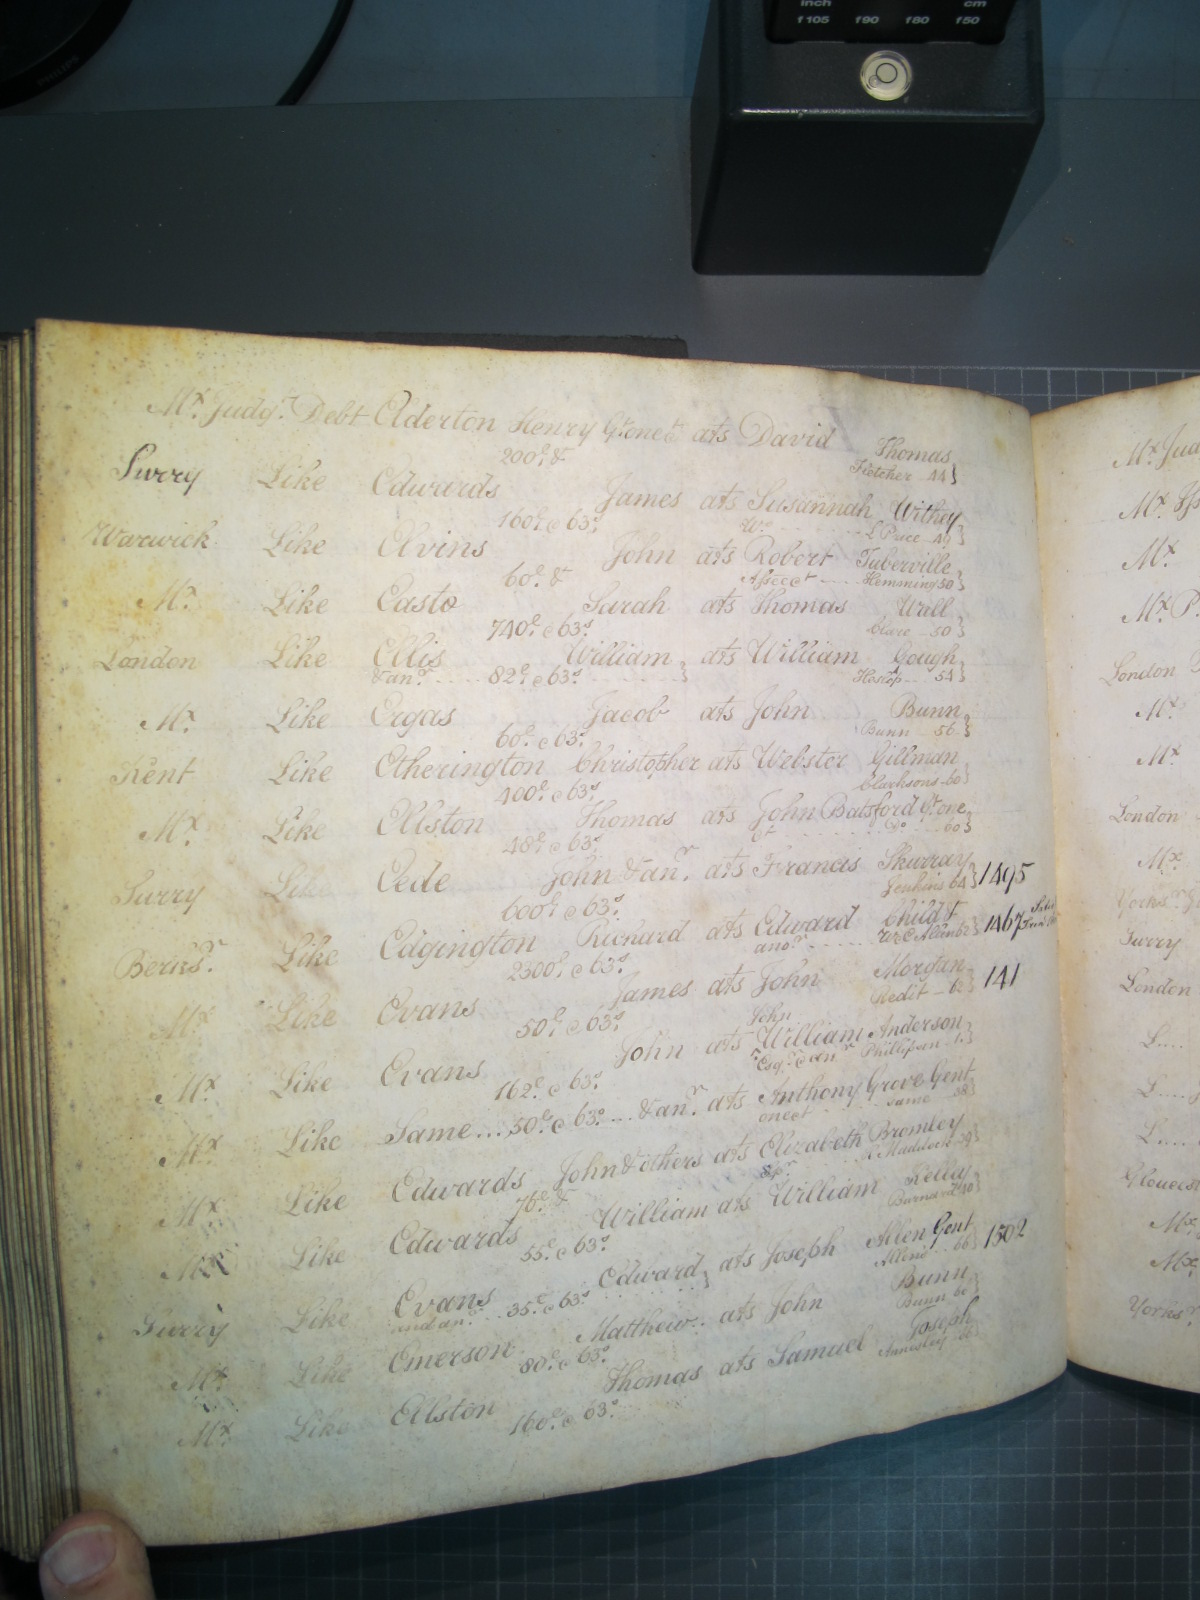 inch cm
f105 f90 f80 f50
PHILIPS
Mx. Judgt. Debt Elderton Henry Gt. one &c ats David Thomas
200£ & Fletcher 44
Surry Like Edwards James ats Susannah Withey
160£ & 63s Wo. L Price 49
Warwick Like Elvins John ats Robert Tuberville
60£ & Assee et Hemming 50
Mx. Like Easto Sarah ats Thomas Wall
740£ & 63s Clare 50
London Like Ellis William ats William Gough
& anr. 82£ & 63s Heslop 54
Mx. Like Ergas Jacob ats John Bunn
60£ & 63s Bunn 56
Kent Like Etherington Christopher ats Webster Gillman
400£ & 63s Clarksons 60
Mx. Like Ellston Thomas ats John Batsford Gt. one
48£ & 63s et Do 60
Surry Like Eede John & anr. ats Francis Skurray
600£ & 63s Jenkins 64 1495
Berks. Like Edgington Richard ats Edward Child &
2300£ & 63s anor. 1467
Mx Like Evans James ats John Morgan
50£ & 63s Redit 62 141
Mx Like Evans John ats John William Anderson
162£ & 63s Esqr. & anr. Phillipson
Mx Like Same 50£ & 63s & anr. ats Anthony Grove Gent
one et same
Mx Like Edwards John & others ats Elizabeth Bromley
76£ & Spr. Maddock
Mx Like Edwards William ats William Kelly
55£ & 63s Barnard
Surry Like Evans Edward ats Joseph Allen Gent
and anr. 35£ & 63s Allen 66 1502
Mx. Like Emerson Matthew ats John Bunn
80£ & 63s Bunn
Mx. Like Ellston Thomas ats Samuel Joseph
160£ & 63s Annesley
Mx Jud
Mx.
Mx.
Mx.
London
Mx.
Mx.
London
Mx.
Yorks.
Surry
London
L
L
L
Gloucest
Mx.
Mx.
Yorks.